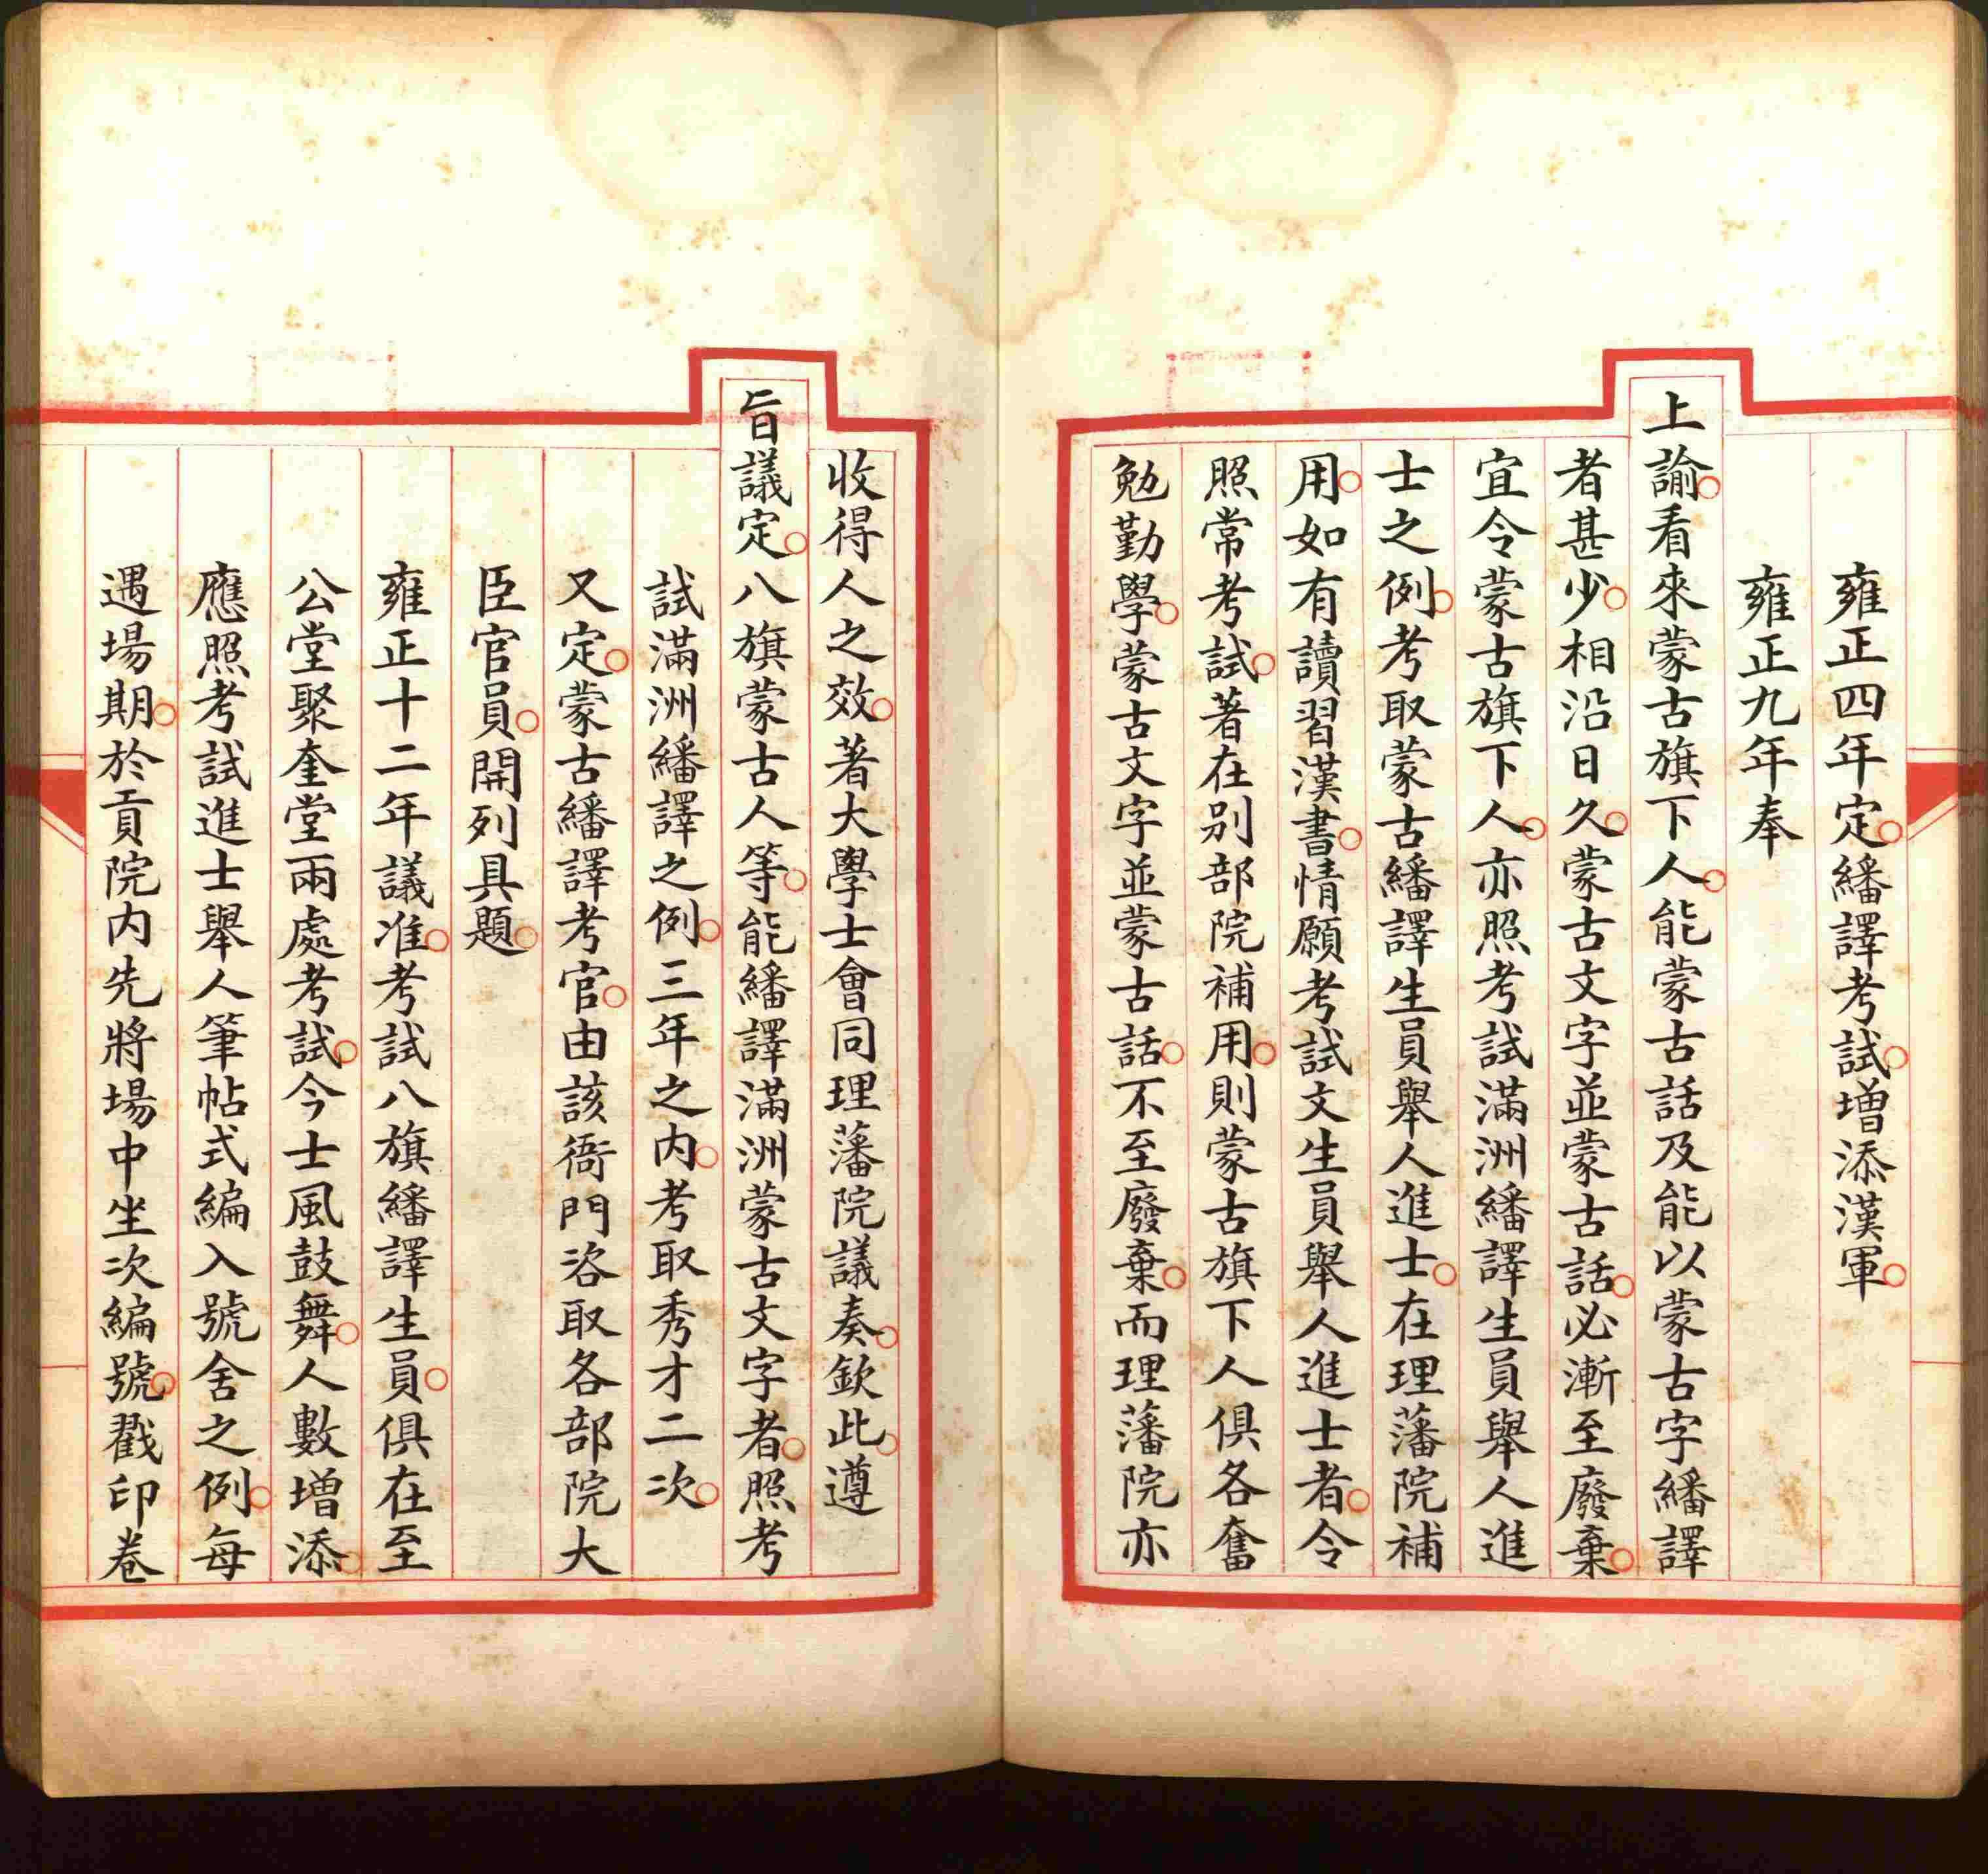 雍正四年定繙譯考試增添漢軍
雍正九年奉
上諭看來蒙古旗下人能蒙古話及能以蒙古字繙譯
者甚少相沿日久蒙古文字並蒙古話必漸至廢棄
宜令蒙古旗下人亦照考試滿洲繙譯生員舉人進
士之例考取蒙古繙譯生員舉人進士在理藩院補
用如有讀習漢書情願考試文生員舉人進士者令
照常考試著在别部院補用則蒙古旗下人俱各奮
勉勤學蒙古文字並蒙古話不至廢棄而理藩院亦
收得人之效著大學士會同理藩院議奏欽此遵
旨議定八旗蒙古人等能繙譯滿洲蒙古文字者照考
試滿洲繙譯之例三年之内考取秀才二次
又定蒙古繙譯考官由該衙門咨取各部院大
臣官員開列具題
雍正十二年議准考試八旗繙譯生員俱在至
公堂聚奎堂兩處考試今士風鼓舞人數增添
應照考試進士舉人筆帖式編入號舍之例每
遇場期於貢院内先將場中坐次編號戳印卷